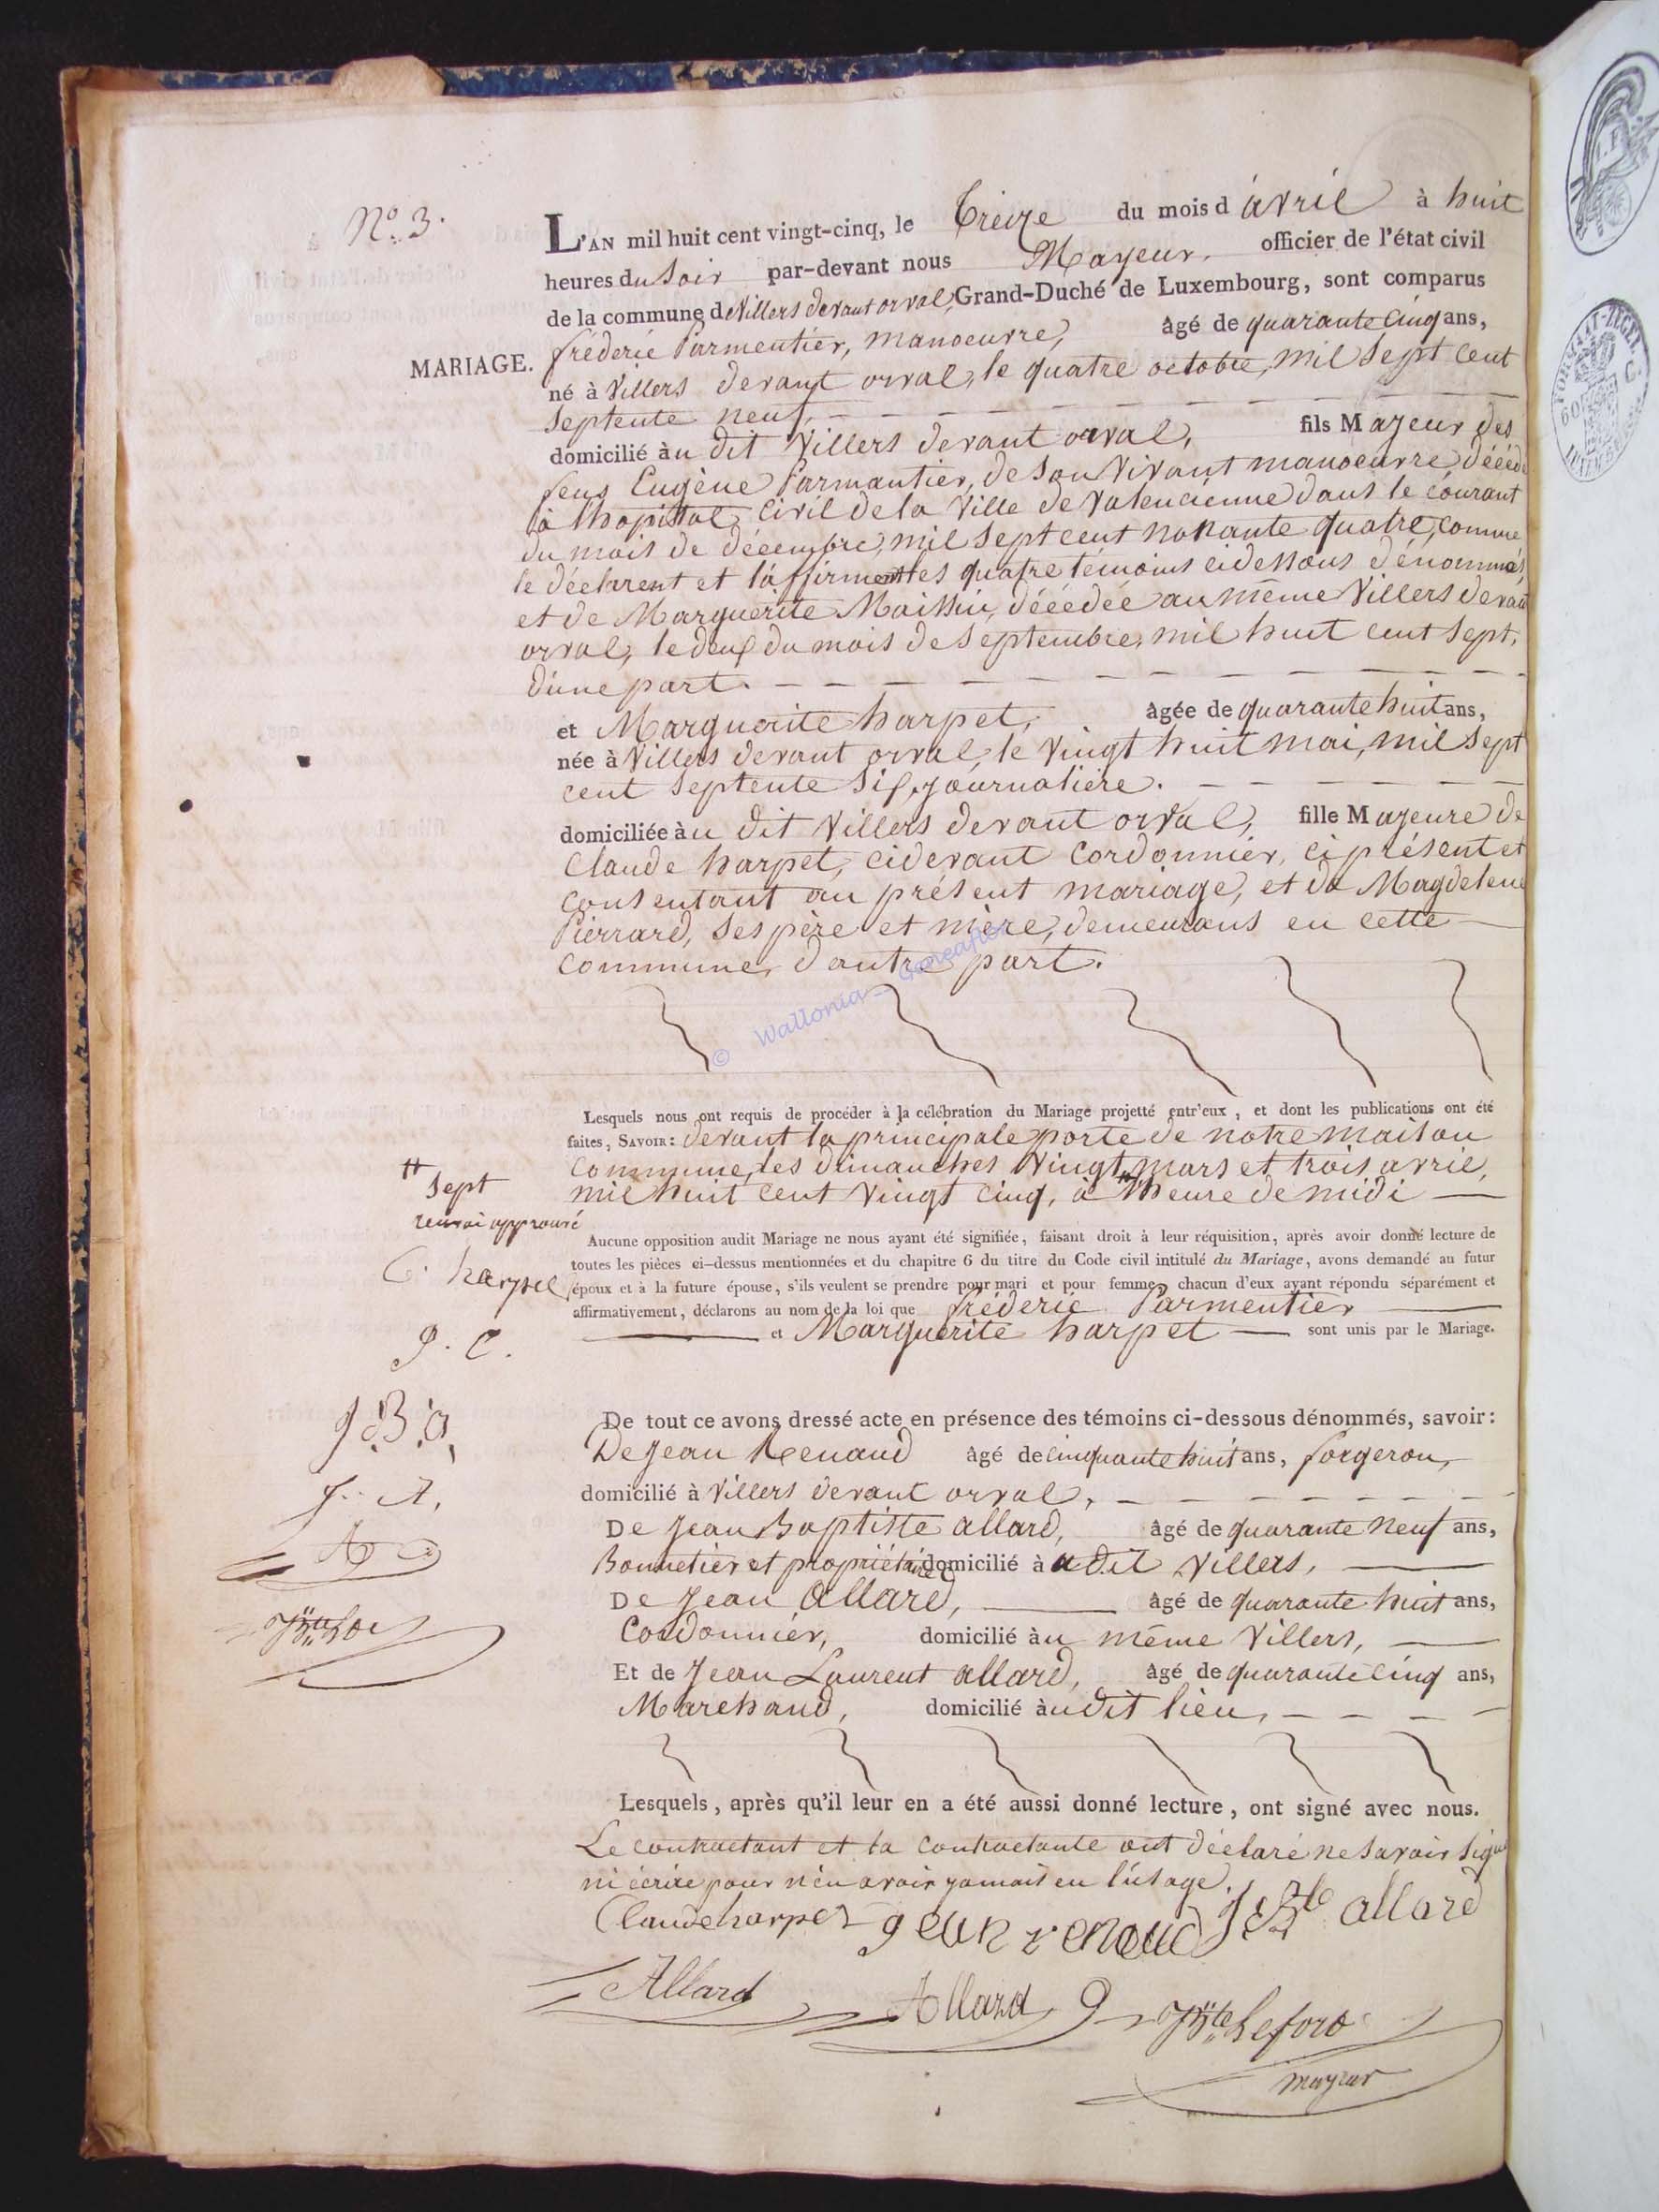 N.º 3.
L'AN mil huit cent vingt-cinq, le treize du mois d'avril à huit
heures du soir par-devant nous Mayeur, officier de l'état civil
de la commune de Villers devant orval, Grand-Duché de Luxembourg, sont comparus
MARIAGE.
fréderic Parmentier, manoeuvre, âgé de quarante cinq ans,
né à Villers devant orval, le quatre octobre, mil sept cent
septente neuf,
domicilié au dit Villers devant orval, fils Majeur des
feus Eugène Parmantier, de son vivant manoeuvre, décédé
à lhopital civil de la Ville de Valencienne dans le courant
du mois de décembre, mil sept cent nonante quatre, comme
le déclarent et l'affirment les quatre témoins cidessous dénommés,
et de Marguerite Maissin, décédée au même Villers devant
orval, le deux du mois de septembre, mil huit cent sept,
d'une part.
et Marguerite harpet, âgée de quarante huit ans,
née à Villers devant orval, le vingt huit mai, mil sept
cent septente six, journalière.
domiciliée au dit Villers devant orval, fille Majeure de
Claude harpet, cidevant cordonnier, ci présent et
consentant au présent mariage, et de Magdelene
Pierrard, ses père et mère, demeurans en cette
commune, d'autre part.
© Wallonia-
Lesquels nous ont requis de procéder à la célébration du Mariage projetté entr'eux, et dont les publications ont été
faites, SAVOIR: devant la principale porte de notre maison
commune, les dimanches vingt mars et trois avril,
mil huit cent vingt cinq, à l'heure de midi
sept
renvoi approuvé
C. harpet
J. C.
J. B. a.
J. A.
Aucune opposition audit Mariage ne nous ayant été signifiée, faisant droit à leur réquisition, après avoir donné lecture de
toutes les pièces ci-dessus mentionnées et du chapitre 6 du titre du Code civil intitulé du Mariage, avons demandé au futur
époux et à la future épouse, s'ils veulent se prendre pour mari et pour femme, chacun d'eux ayant répondu séparément et
affirmativement, déclarons au nom de la loi que fréderic Parmentier
et Marguerite harpet sont unis par le Mariage.
De tout ce avons dressé acte en présence des témoins ci-dessous dénommés, savoir:
De Jean Renaud âgé de cinquante huit ans, forgeron,
domicilié à Villers devant orval,
De Jean Baptiste allard, âgé de quarante neuf ans,
Bonnetier et propriétaire domicilié au dit Villers,
De Jean Allard, âgé de quarante huit ans,
Cordonnier, domicilié au même Villers,
Et de Jean Laurent allard, âgé de quarante cinq ans,
Marchand, domicilié au dit lieu,
Lesquels, après qu'il leur en a été aussi donné lecture, ont signé avec nous.
Le contractant et la contractante ont déclaré ne savoir signer
ni écrire pour n'en avoir jamais eu l'usage.
Claude harpet jean renaud J Bte allard
Allard Allard J Bte Lefort
mayeur